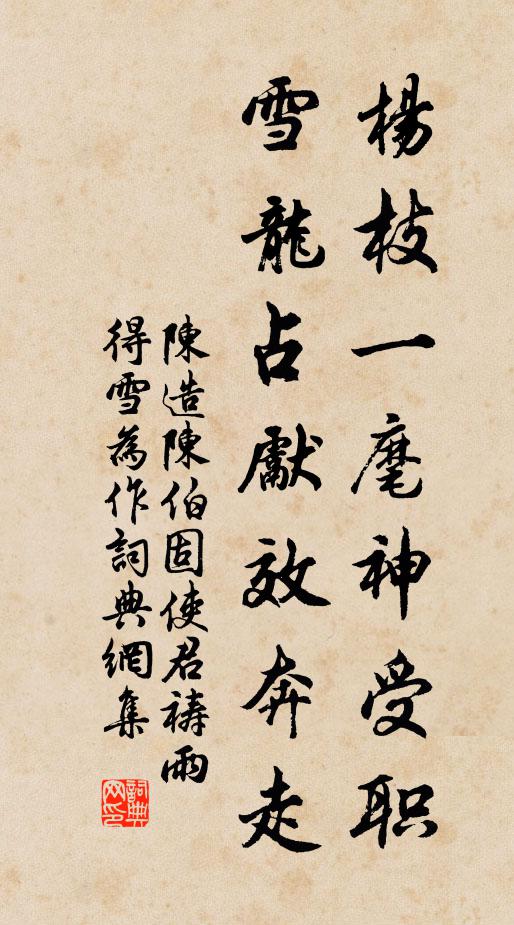 楊枝一麾神受职
雪龍占獻效奔走
陳造陳伯固使君禱雨
得雪為作詞典網集
詞典网印